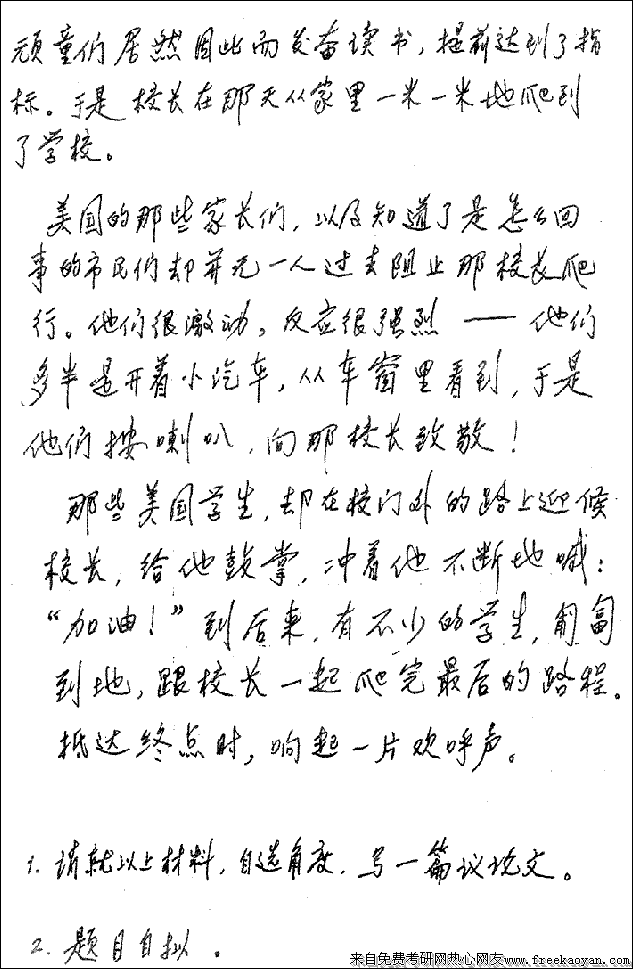 顽童们居然因此而发奋读书，提前达到了指
标。于是校长在那天从家里一米一米地爬到
了学校。
美国的那些家长们，以及知道了是怎么回
事的市民们却并无一人过去阻止那校长爬
行。他们很激动。反应很强烈——他们
多半是开着小汽车，从车窗里看到，于是
他们按喇叭，向那校长致敬！
那些美国学生，却在校门外的路上迎候
校长，给他鼓掌，冲着他不断地喊：
“加油！”到后来，有不少的学生，匍匐
到地，跟校长一起爬完最后的路程。
抵达终点时，响起一片欢呼声。
1. 请就以上材料，自选角度，写一篇议论文。
2. 题目自拟。
来自免费考研网热心网友www.freekaoyan.com